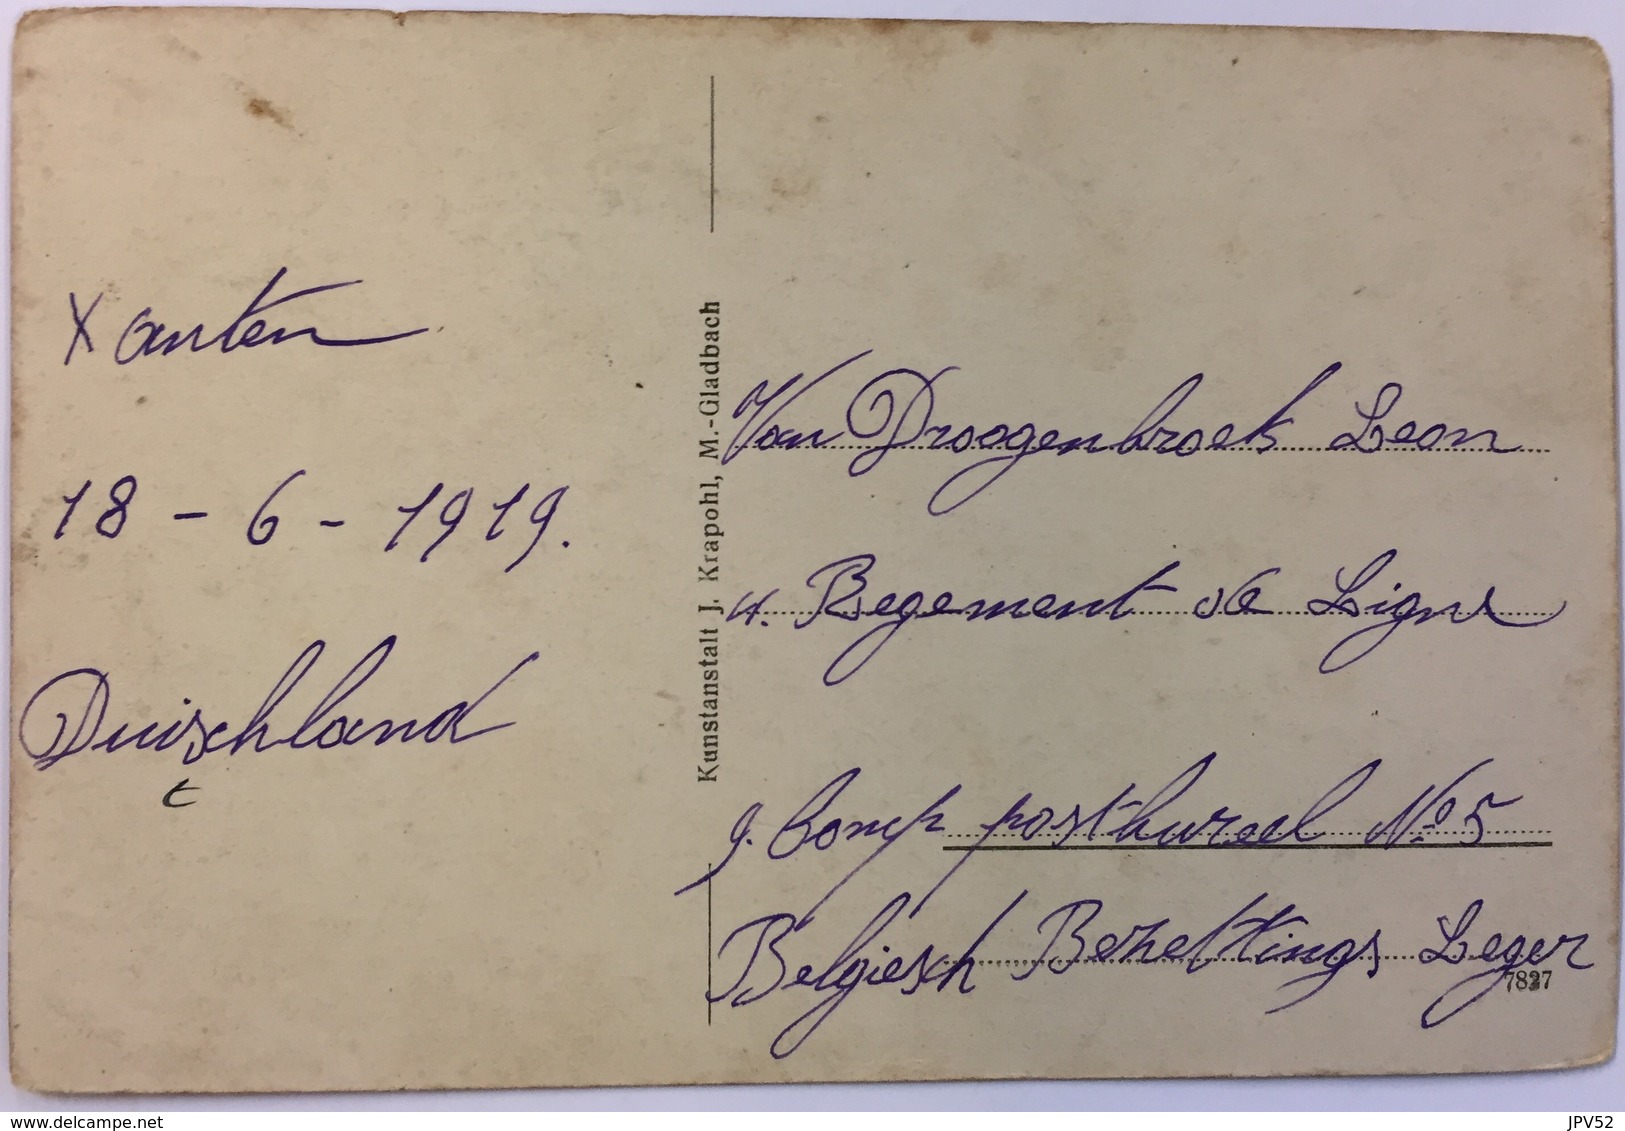 Xanten
18 - 6 - 1919.
Duischland
t
Kunstanstalt J. Krapohl, M.-Gladbach
Van Droogenbroek Leon
4. Regement de Ligne
9. Comp postbureel No 5
Belgiesch Bezettings Leger
7827
www.delcampe.net
JPV52